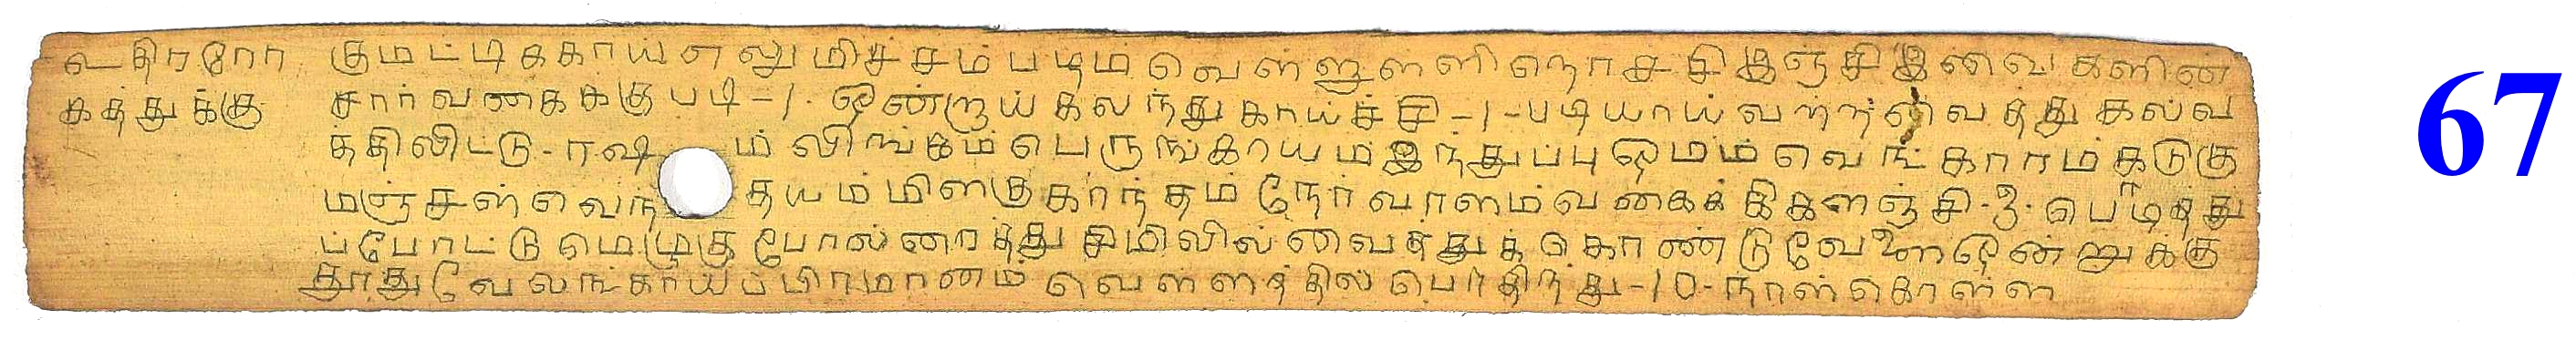 உதிரரோ குமட்டிககாய் எலுமிச்சம் படிம் வெள்ளுள்ளி நொச்சி இஞ்சி இவைகளின்
கத்துக்கு சார் வகைக்கு படி - 1 - ஒன்றாய் கலந்து காய்ச்சி - 1 - படியாய் வற்ற வைத்து கல்வ
த்திலிட்டு - ரஷ ம் லிங்கம் பெருங்காயம் இந்துப்பு ஓமம் வெங்காரம் கடுகு
மஞ்சள் வெந் தயம் மிளகு காந்தம் நேர்வாளம் வகைக்கி களஞ்சி - 3 - பொடித்து
ப்போட்டு மெழுகு போல் அரைத்து சிமிலில் வைத்துக் கொண்டு வேளை ஒன்றுக்கு
தூதுவேலங்காய்ப்பிரமாணம் வெள்ளத்தில் பொதிந்து - 10 - நாள் கொள்ள
67